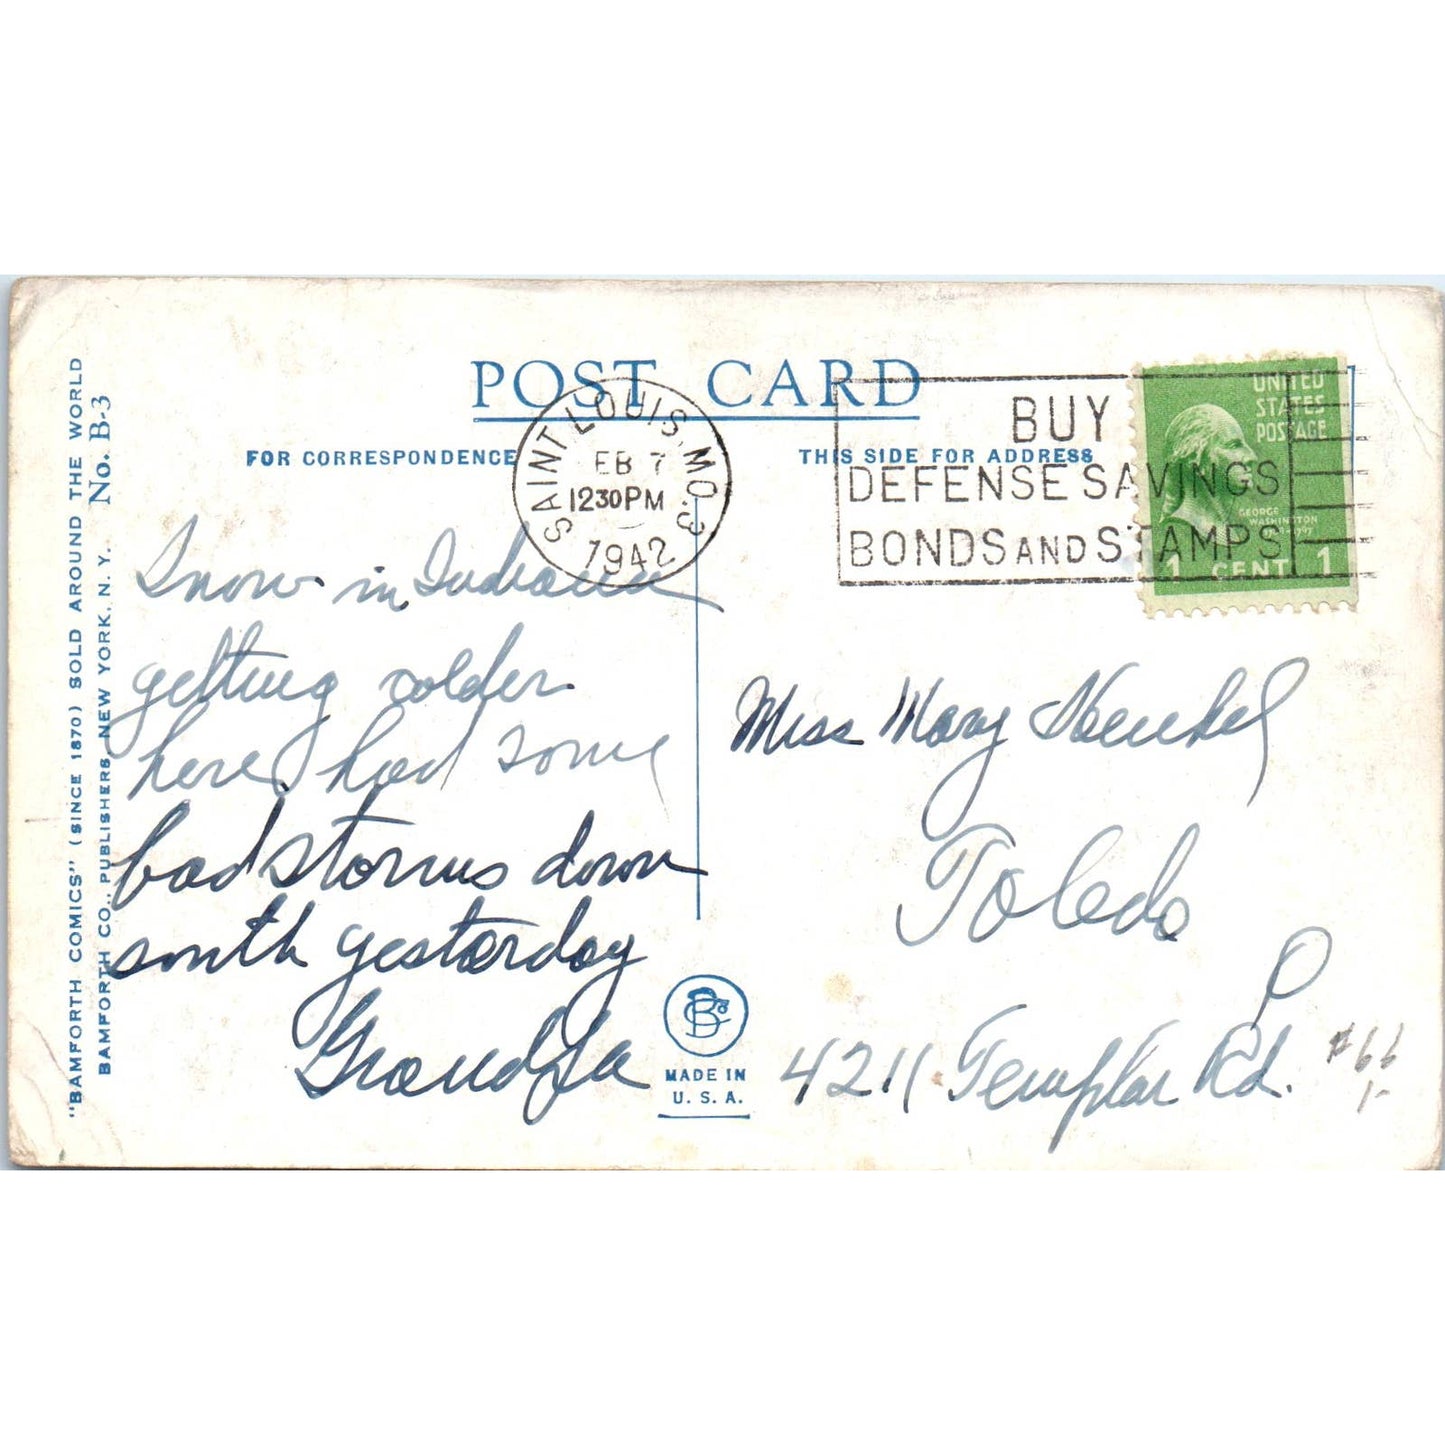 "BAMFORTH COMICS" (SINCE 1870) SOLD AROUND THE WORLD
BAMFORTH CO., PUBLISHERS, NEW YORK, N. Y. No. B-3
POST CARD
FOR CORRESPONDENCE
THIS SIDE FOR ADDRESS
SAINT LOUIS, MO. 3
FEB 7
12 30 PM
1942
BUY
DEFENSE SAVINGS
BONDS AND STAMPS
UNITED
STATES
POSTAGE
GEORGE
WASHINGTON
1 CENT 1
Snow in Indiana
getting colder
here had some
bad storms down
south yesterday
Grandpa
Miss Mary Henkel
Toledo
O
4211 Templar Rd.
#66
1-
MADE IN
U. S. A.